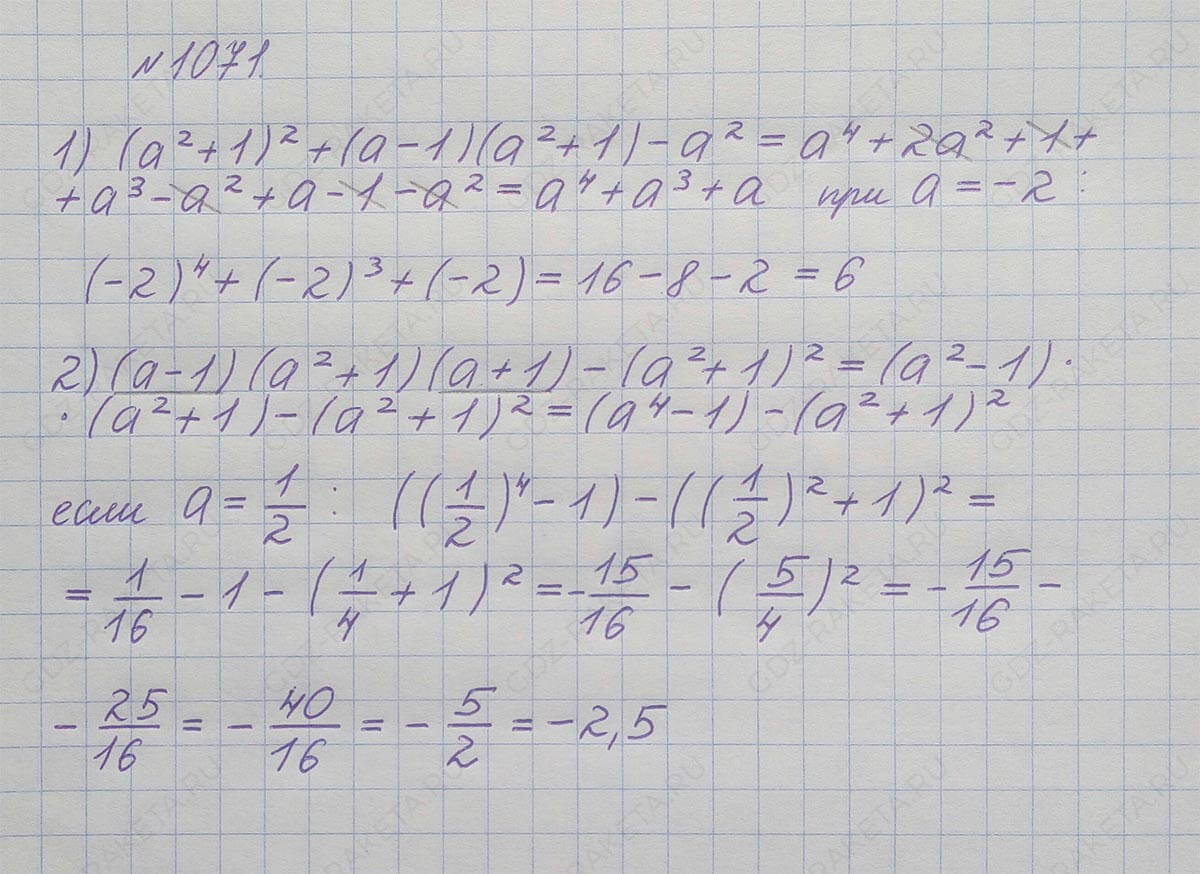 №1071
1) (a²+1)²+(a-1)(a²+1)-a²=a⁴+2a²+1+
+a³-a²+a-1-a²=a⁴+a³+a при a=-2:
(-2)⁴+(-2)³+(-2)=16-8-2=6
2)(a-1)(a²+1)(a+1)-(a²+1)²=(a²-1)·
·(a²+1)-(a²+1)²=(a⁴-1)-(a²+1)²
если a=1/2: ((1/2)⁴-1)-((1/2)²+1)²=
=1/16-1-(1/4+1)²=-15/16-(5/4)²=-15/16-
-25/16=-40/16=-5/2=-2,5
GDZ-RAKETA.RU